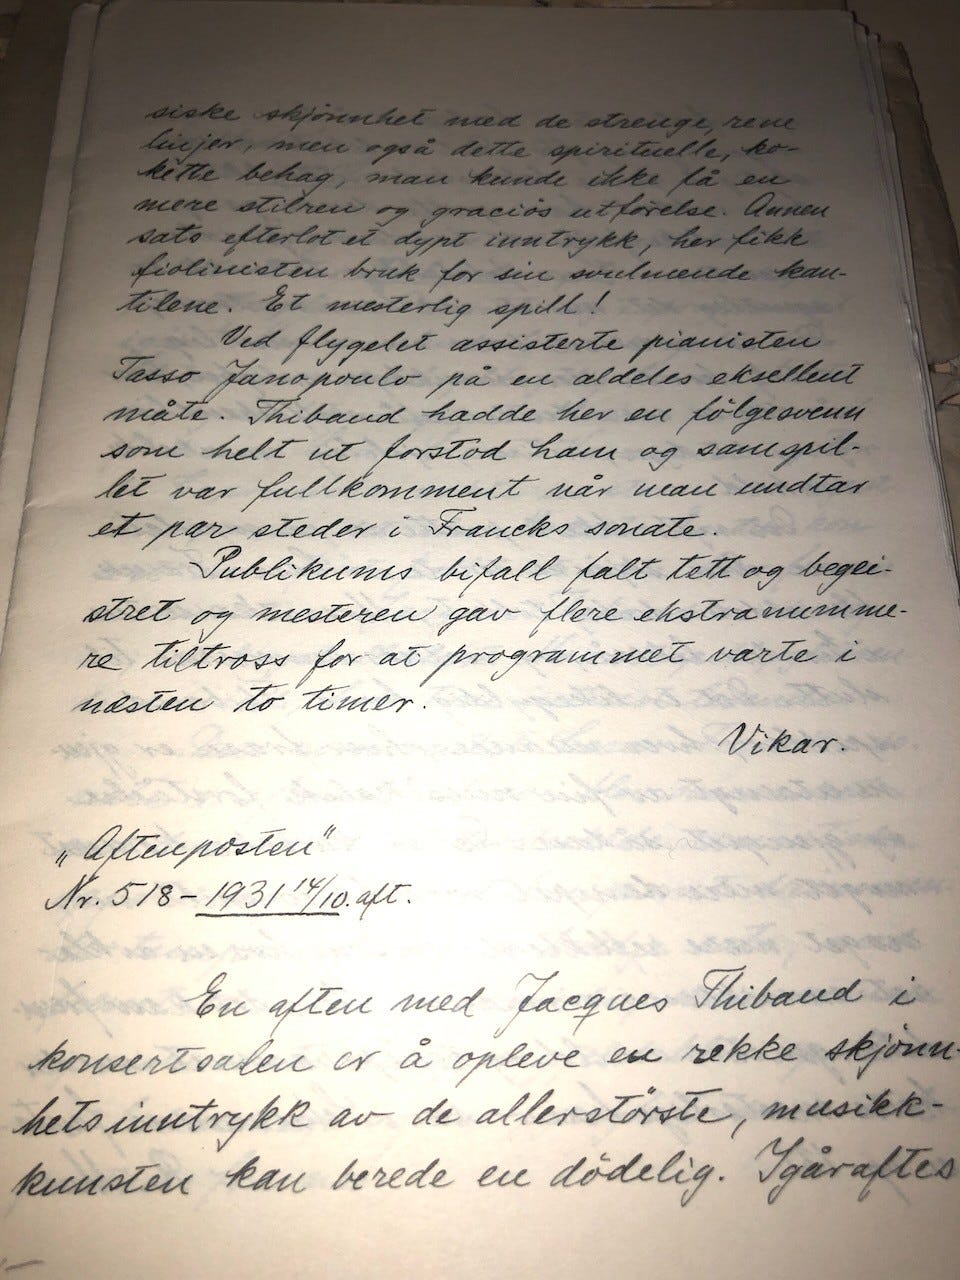 siske skjønnhet med de strenge, rene
linjer, men også dette spirituelle, ko-
kette behag, man kunde ikke få en
mere stilren og graciøs utførelse. Annen
sats efterlot et dypt inntrykk, her fikk
fiolinisten bruk for sin svulmende kan-
tilene. Et mesterlig spill!
Ved flygelet assisterte pianisten
Tasso Janopoulo på en aldeles eksellent
måte. Thibaud hadde her en følgesvenn
som helt ut forstod ham og samspil-
let var fullkomment når man undtar
et par steder i Francks sonate.
Publikums bifall falt tett og begei-
stret og mesteren gav flere ekstranumme-
re tiltross for at programmet varte i
næsten to timer.
Vikar.
„Aftenposten"
Nr. 518 – 1931 14/10. aft.
En aften med Jacques Thibaud i
konsertsalen er å opleve en rekke skjønn-
hetsinntrykk av de allerstörste, musikk-
kunsten kan berede en dödelig. Igåraftes